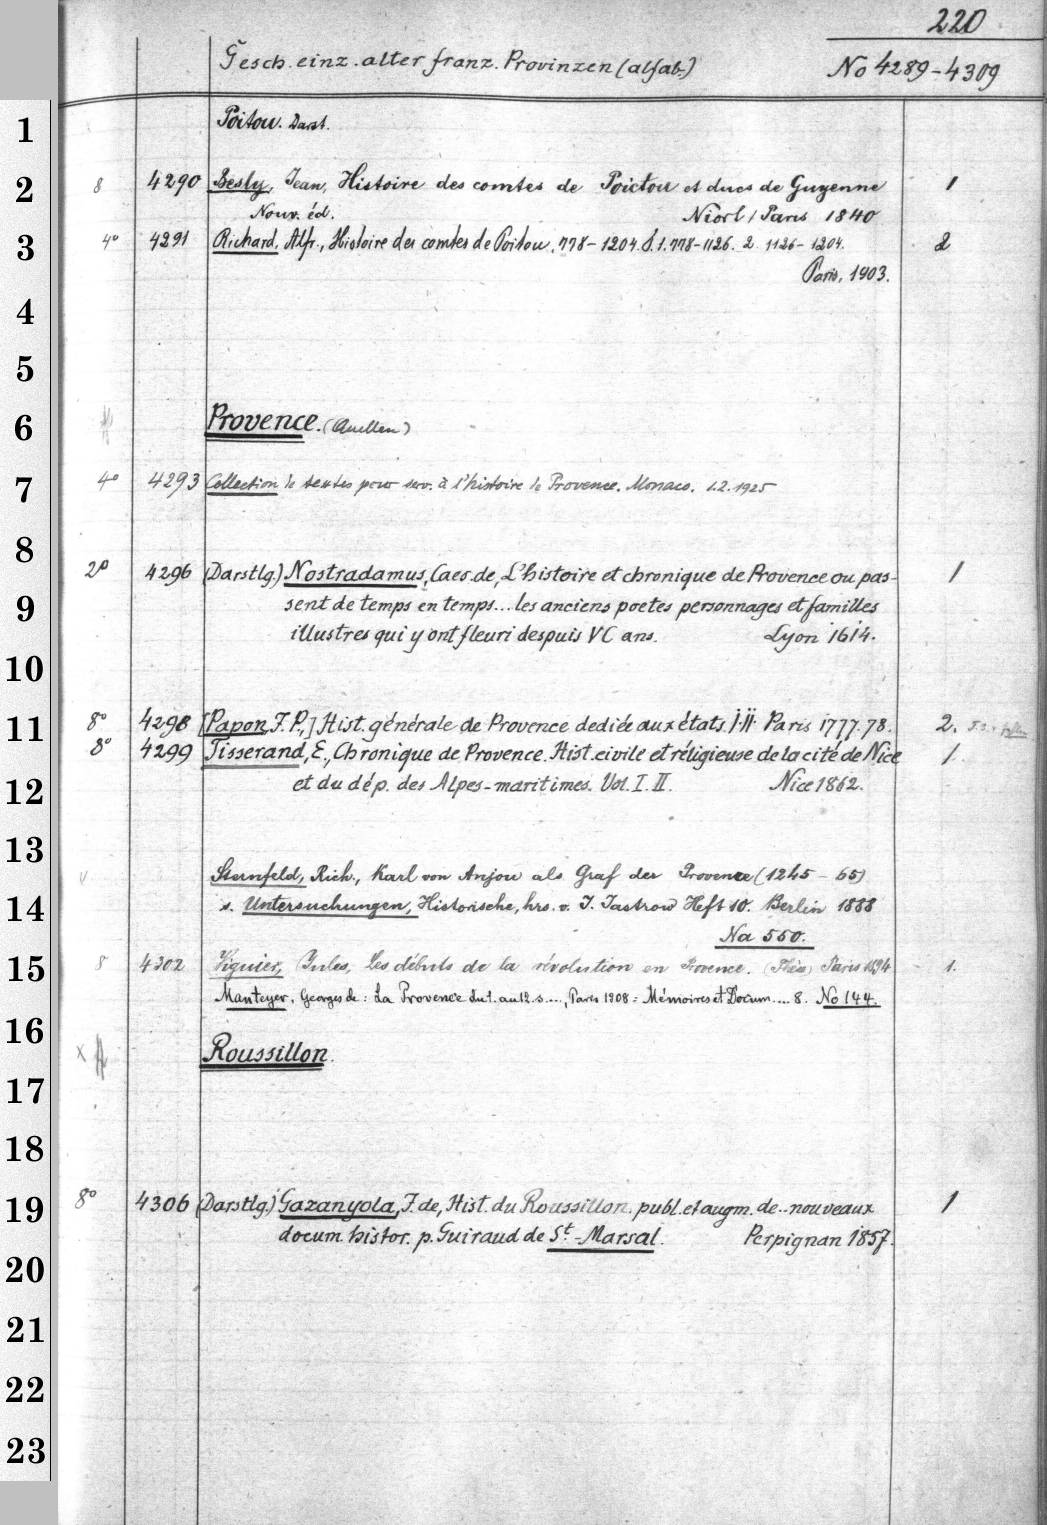 220
Gesch. einz. alter franz. Provinzen (alfab.)
No 4289-4309
1
Poitou. Darst.
2 8 4290 Besly, Jean, Histoire des comtes de Poictou et ducs de Guyenne 1
Nouv. éd. Niort / Paris 1840
3 4° 4291 Richard, Alfr., Histoire des comtes de Poitou, 778-1204. 1. 778-1126. 2. 1126-1204. 2
Paris, 1903.
4
5
6 Provence. (Quellen)
7 4° 4293 Collection de textes pour serv. à l'histoire de Provence. Monaco. 1.2. 1925
8
2° 4296 (Darstlg.) Nostradamus, Caes. de, L'histoire et chronique de Provence ou pas- 1
9 sent de temps en temps... les anciens poetes personnages et familles
illustres qui y ont fleuri despuis VC ans. Lyon 1614.
10
11 8° 4298 [Papon, J. P.,] Hist. générale de Provence dediée aux états I.II Paris 1777.78. 2.
8° 4299 Tisserand, E., Chronique de Provence. Hist. civile et réligieuse de la cité de Nice 1
12 et du dép. des Alpes-maritimes. Vol. I. II. Nice 1862.
13
Sternfeld, Rich., Karl von Anjou als Graf der Provence (1245-65)
14 s. Untersuchungen, Historische, hrs. v. J. Jastrow Heft 10. Berlin 1888
Na 550.
15 8 4302 Viguier, Jules, Les débuts de la révolution en Provence. (Thèse) Paris 1894 1.
Manteyer, Georges de: La Provence du 1. au 12. s...., Paris 1908 = Mémoires et Docum.... 8. No 144.
16
x Roussillon.
17
18
19 8° 4306 (Darstlg.) Gazanyola, J. de, Hist. du Roussillon, publ. et augm. de.. nouveaux 1
docum. histor. p. Guiraud de St-Marsal. Perpignan 1857.
20
21
22
23